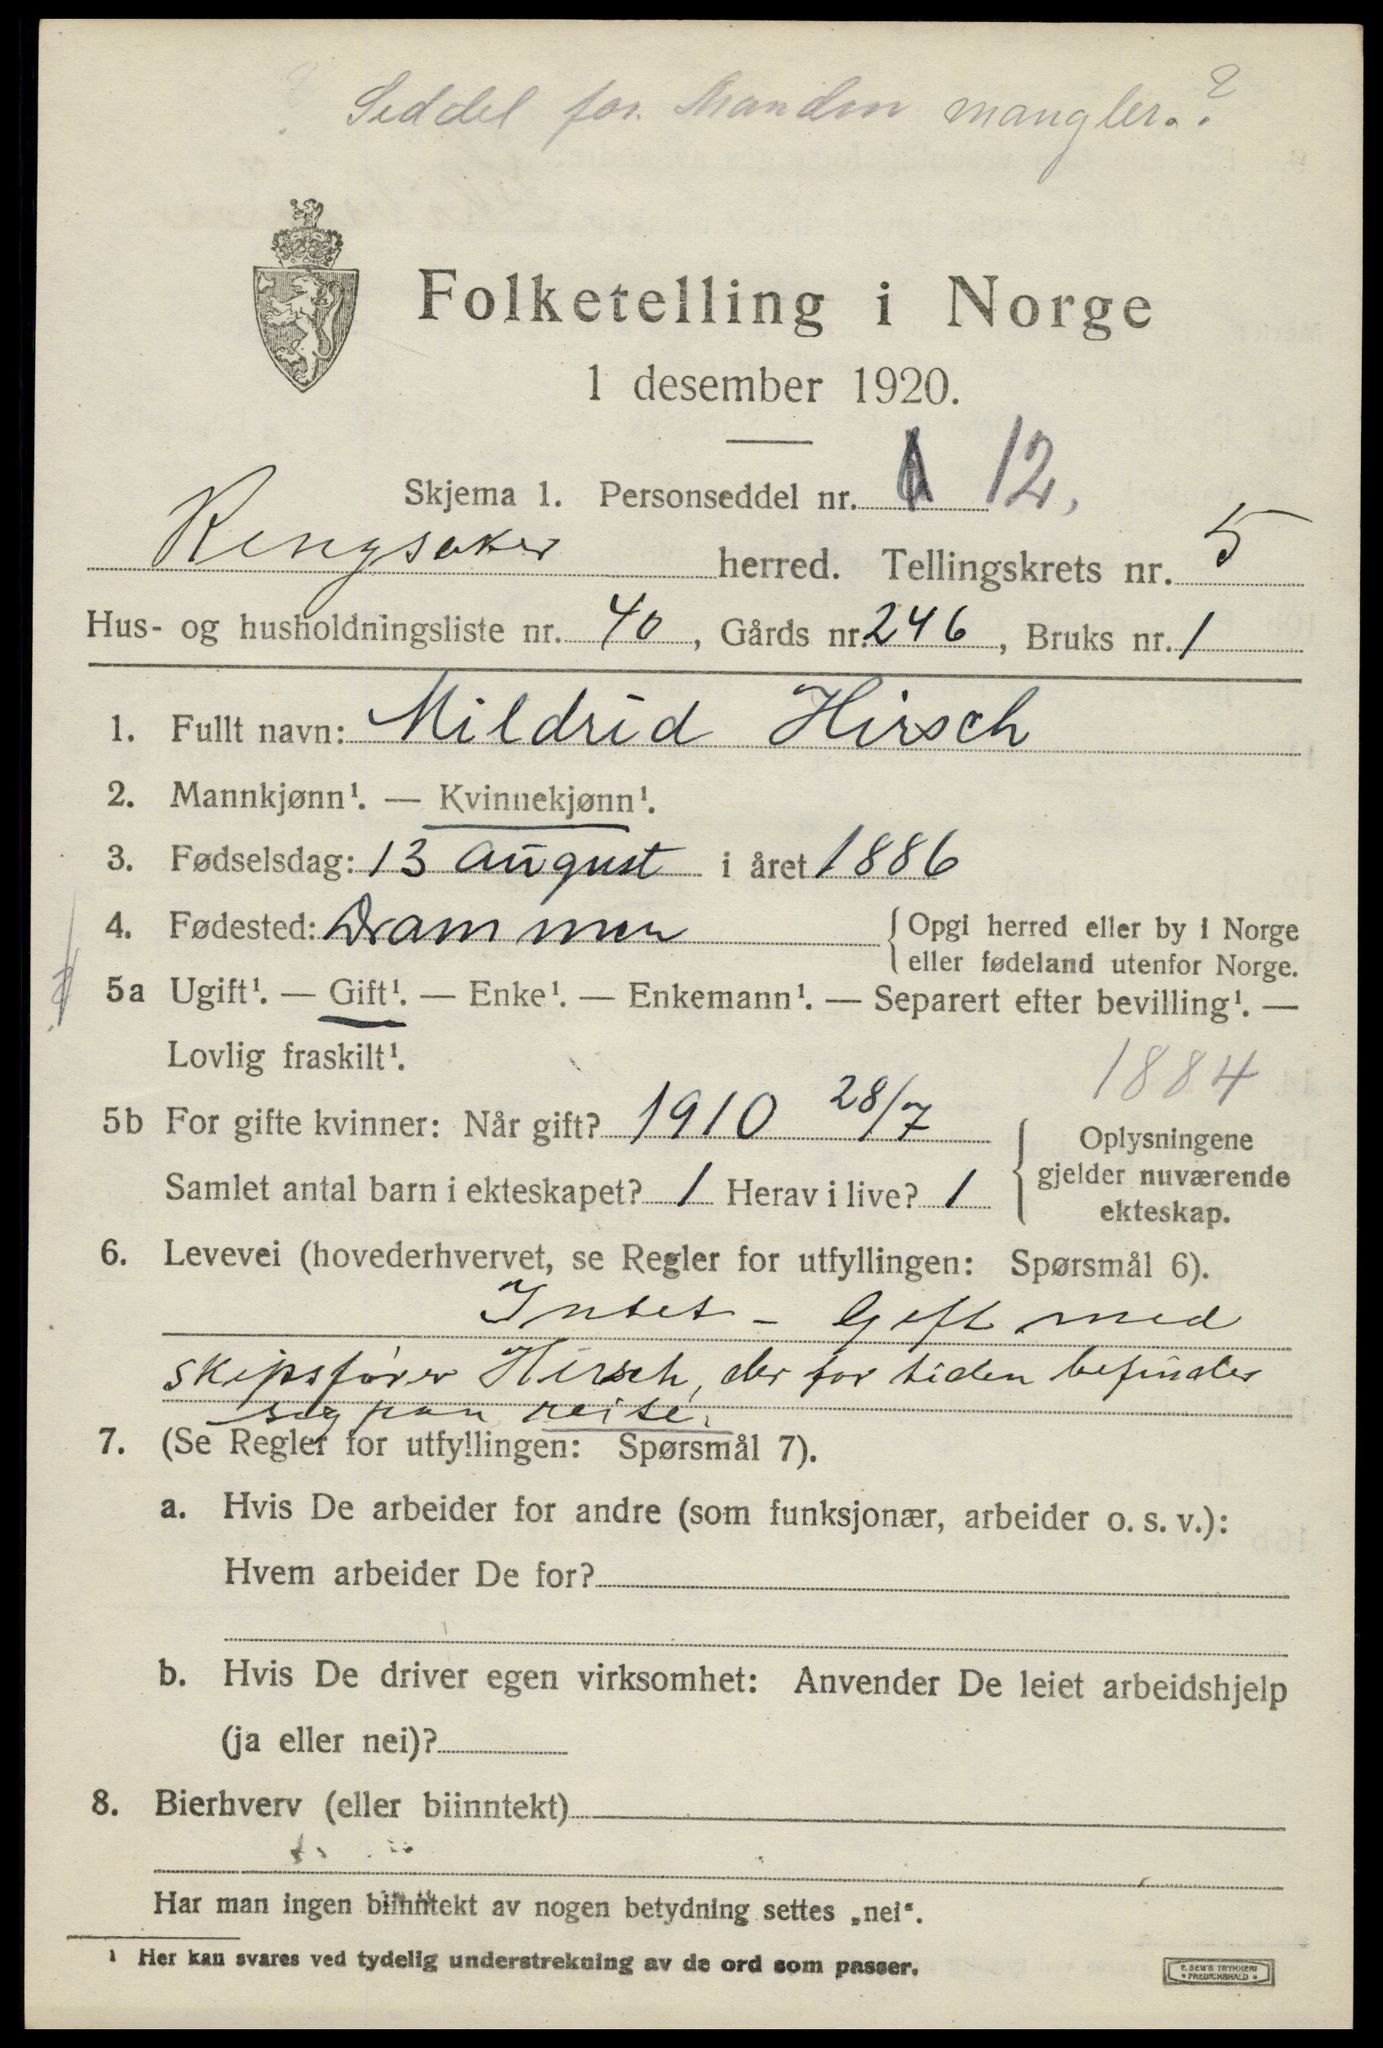 ? Seddel for Manden mangler.?
Folketelling i Norge
1 desember 1920.
Skjema 1. Personseddel nr. 12.
Ringsaker herred. Tellingskrets nr. 5
Hus- og husholdningsliste nr. 40, Gårds nr. 246, Bruks nr. 1
1. Fullt navn: Mildrid Hirsch
2. Mannkjønn¹. — Kvinnekjønn¹.
3. Fødselsdag: 13 august i året 1886
4. Fødested: Drammen { Opgi herred eller by i Norge
eller fødeland utenfor Norge.
5a Ugift¹. — Gift¹. — Enke¹. — Enkemann¹. — Separert efter bevilling¹. —
Lovlig fraskilt¹.
1884
5b For gifte kvinner: Når gift? 1910 28/7
Samlet antal barn i ekteskapet? 1 Herav i live? 1
{ Oplysningene
gjelder nuværende
ekteskap.
6. Levevei (hovederhvervet, se Regler for utfyllingen: Spørsmål 6).
Intet - Gift med
skipsfører Hirsch, der for tiden befinder
sig paa reise.
7. (Se Regler for utfyllingen: Spørsmål 7).
a. Hvis De arbeider for andre (som funksjonær, arbeider o. s. v.):
Hvem arbeider De for?
b. Hvis De driver egen virksomhet: Anvender De leiet arbeidshjelp
(ja eller nei)?
8. Bierhverv (eller biinntekt)
Har man ingen biinntekt av nogen betydning settes „nei“.
¹ Her kan svares ved tydelig understrekning av de ord som passer.
E. SEM'S TRYKKERI
* FREDRIKSHALD *